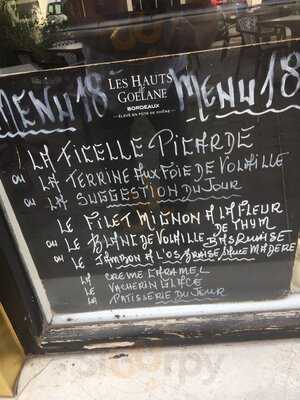 LES HAUTS
GOËLANE
BORDEAUX
ÉLEVÉ EN FÛTS DE CHÊNE
MENU 18 MENU 18
LA FICELLE PICARDE
OU LA TERRINE AUX FOIE DE VOLAILLE
OU LA SUGGESTION DU JOUR
LE FILET MIGNON A LA FLEUR
DE THYM
OU LE BLANC DE VOLAILLE BASQUAISE
OU LE JAMBON A L'OS BRAISE SAUCE MADERE
LA CREME CARAMEL
LE VACHERIN GLACE
LA PATISSERIE DU JOUR